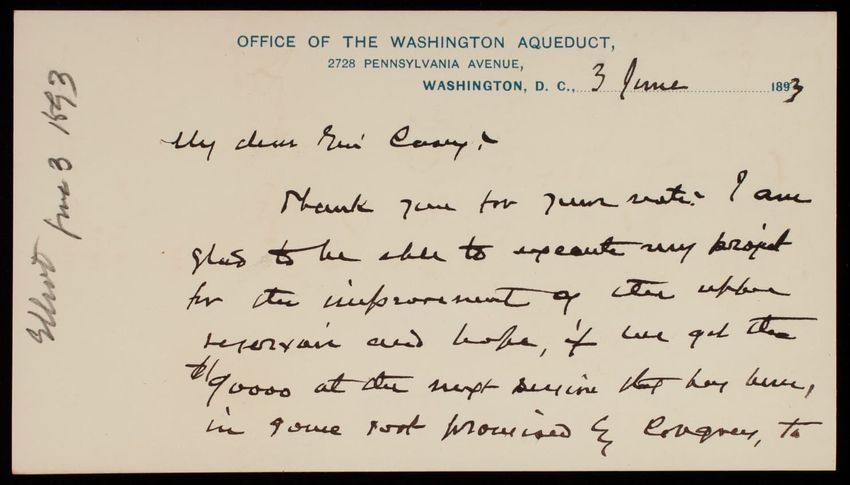 OFFICE OF THE WASHINGTON AQUEDUCT,
2728 PENNSYLVANIA AVENUE,
WASHINGTON, D. C., 3 June 1893
My dear Gen'l Casey:
Thank you for your note. I am
glad to be able to execute my project
for the improvement of the upper
reservoir and hope, if we get the
$90000 at the next session that has been,
in some sort promised by Congress, to
Elliot June 3 1893